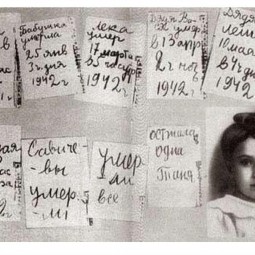 Бабушка
умерла
25 янв
3 ч дня
1942 г
Лека
умер
17 марта
1942 г
Дядя Ва
ся умер
в 13 апр
2 ч ноч
1942 г
Дядя
Леша
10 мая
в 4 ч дн
1942 г
Савиче
-вы
умер
-ли
умер
-ли
все
остала
одна
Таня